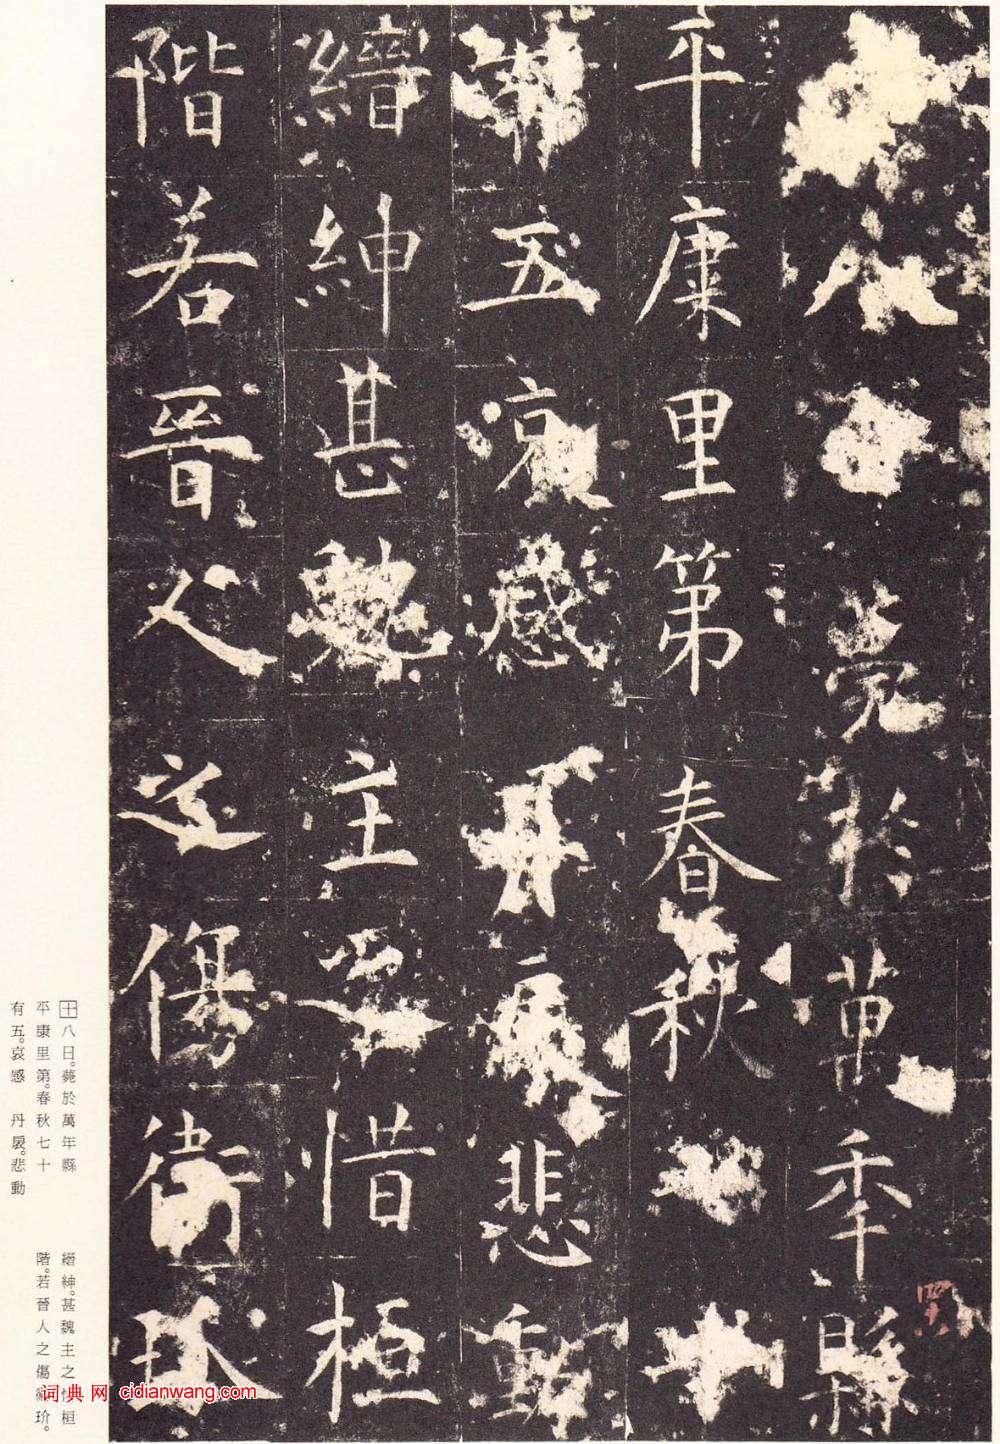 八日薨於萬年縣
平康里第春秋七十
有五哀感丹扆悲動
縉紳甚魏主之惜桓
階若晉人之傷衛玠
十八日。薨於萬年縣
平康里第。春秋七十
有五。哀感 丹扆。悲動
縉紳。甚魏主之惜桓
階。若晉人之傷衛玠。
词典网 cidianwang.com